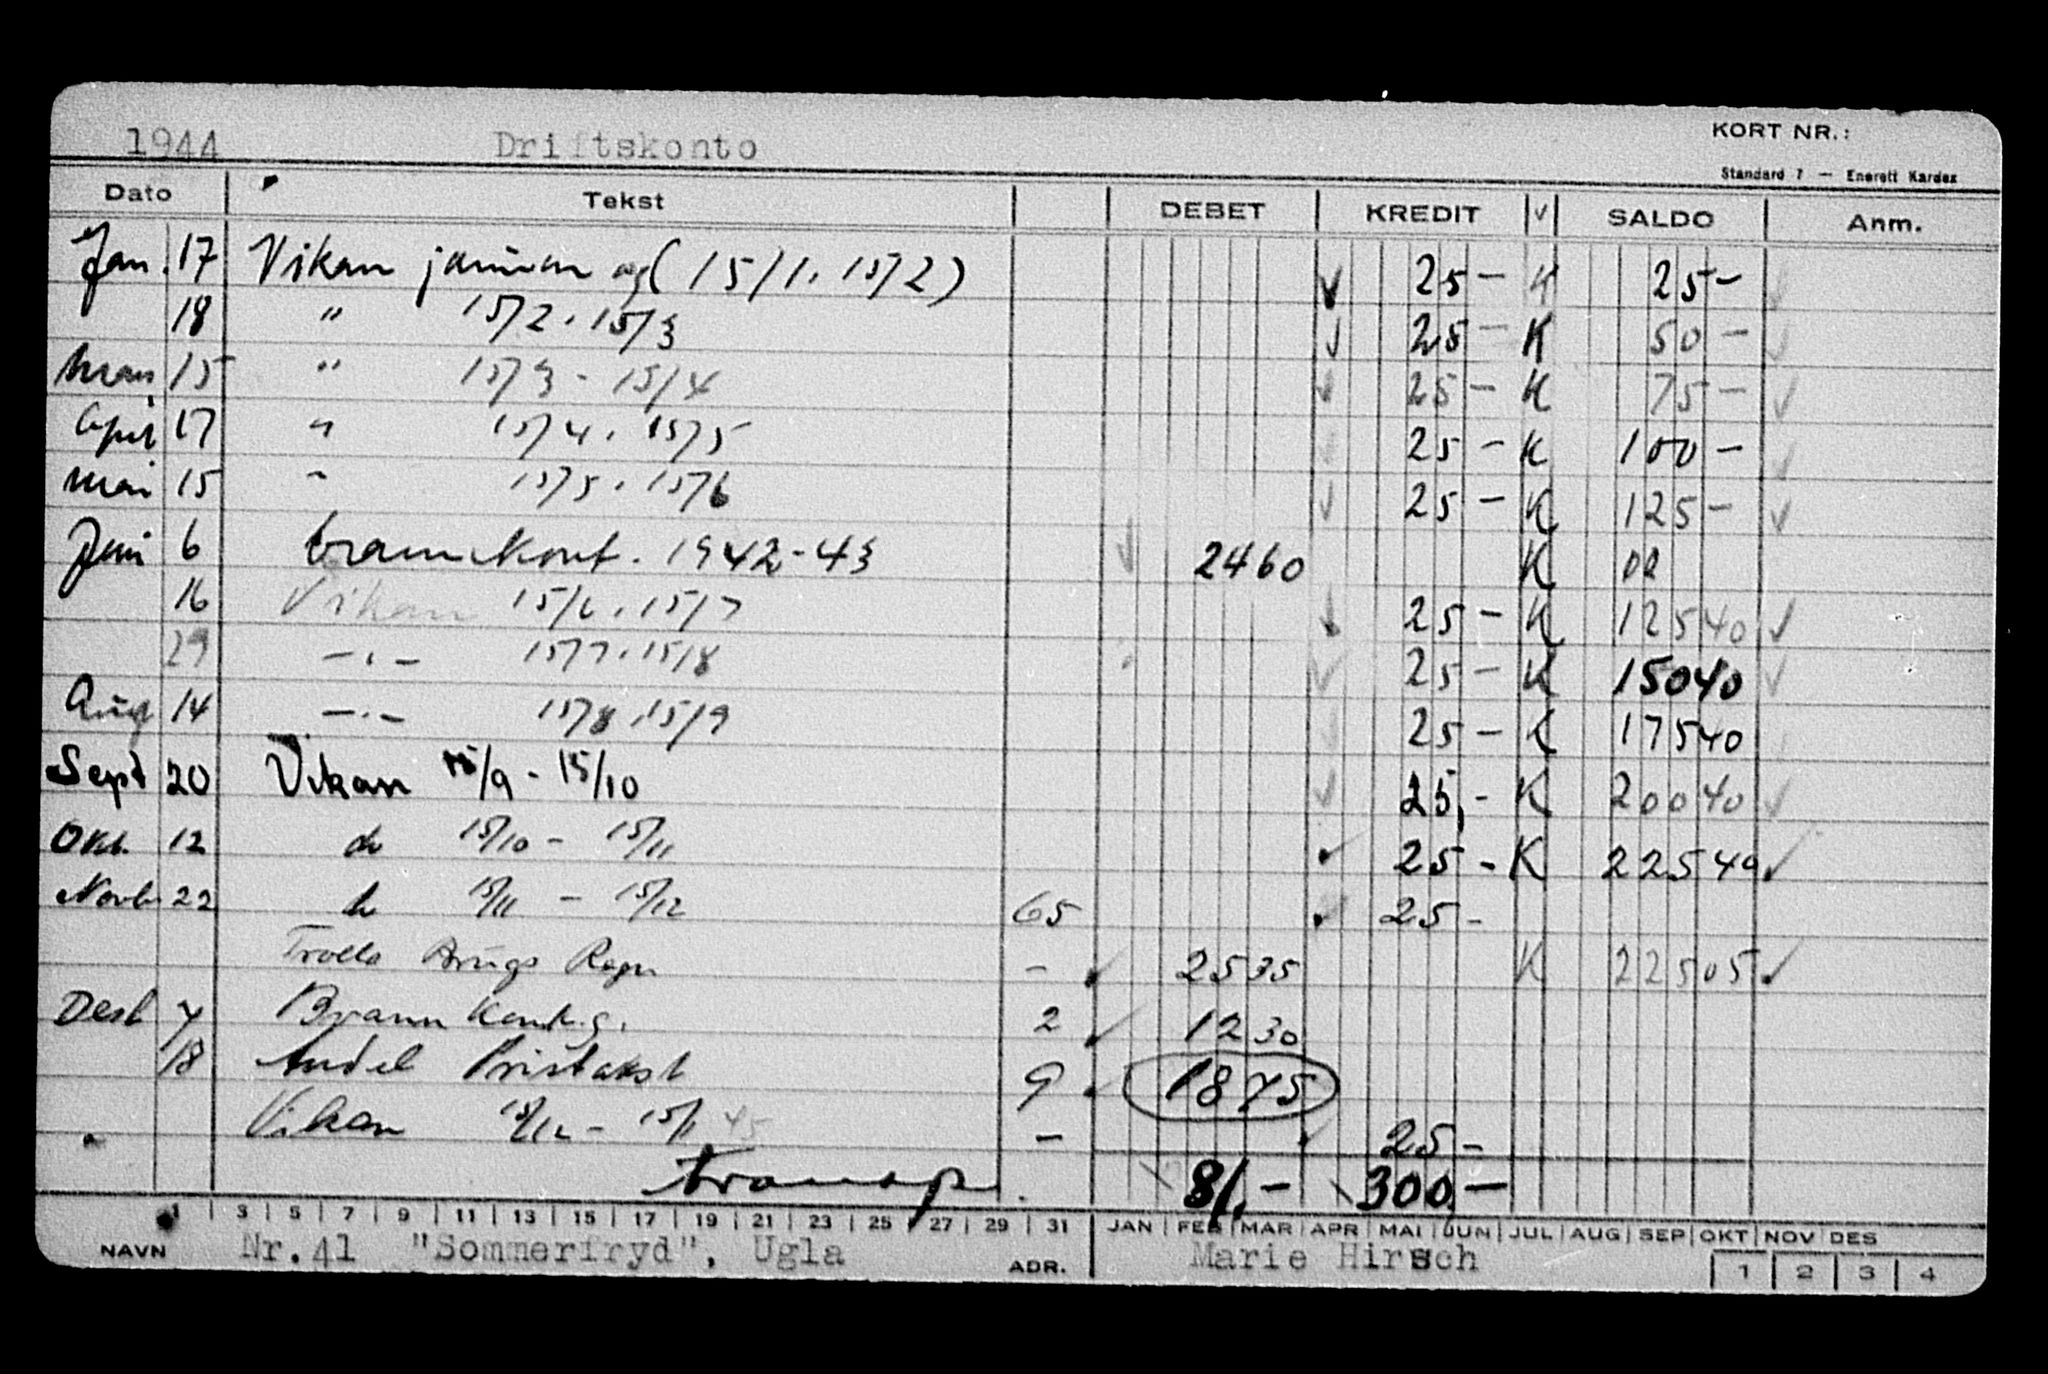 1944 Driftskonto KORT NR.:
Standard 7 — Enerett Kardex
Dato Tekst DEBET KREDIT √ SALDO Anm.
Jan. 17 Vikan januar og (15/1. 15/2) √ 25 - K 25 -
18 " 15/2. 15/3 √ 25 - K 50 - √
15 " 15/3 - 15/4 √ 25 - K 75 - √
April 17 " 15/4. 15/5 √ 25 - K 100 - √
Mai 15 " 15/5. 15/6 √ 25 - K 125 - √
Juni 6 brannkont. 1942-43 √ 2460 K
16 Vikan 15/6. 15/7 √ 25 - K 12540 √
29 -"- 15/7. 15/8 √ 25 - K 15040 √
Aug 14 -"- 15/8. 15/9 25 - K 17540
Sept 20 Vikan 15/9 - 15/10 √ 25,- K 20040 √
Okt. 12 do 15/10 - 15/11 √ 25 - K 22540 √
Novb 22 do 15/11 - 15/12 65 √ 25 -
Trolla Brugs Regn - √ 2535 K 22505 √
Desb 7 Brann Kontig. 2 √ 1230
18 Andel Pristakst 9 √ 1875
Vikan 15/12 - 15/1 45 - √ 25 -
transp. 81.- 300 -
1 3 5 7 9 11 13 15 17 19 21 23 25 27 29 31 JAN FEB MAR APR MAI JUN JUL AUG SEP OKT NOV DES
NAVN Nr.41 "Sommerfryd", Ugla ADR. Marie Hirsch 1 2 3 4